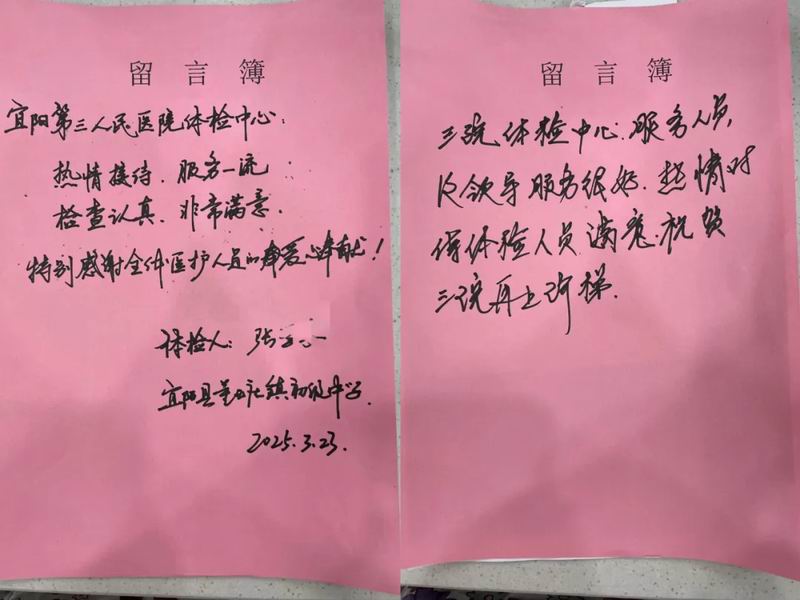 留言簿
宜阳第三人民医院体检中心:
热情接待.服务一流
检查认真.非常满意.
特别感谢全体医护人员的爱心奉献!
体检人:张
宜阳县董王庄镇初级中学.
2025.3.23.
留言簿
三院体检中心.服务人员,
及领导服务很好.热情对
待体验人员 满意.祝贺
三院再上阶梯.